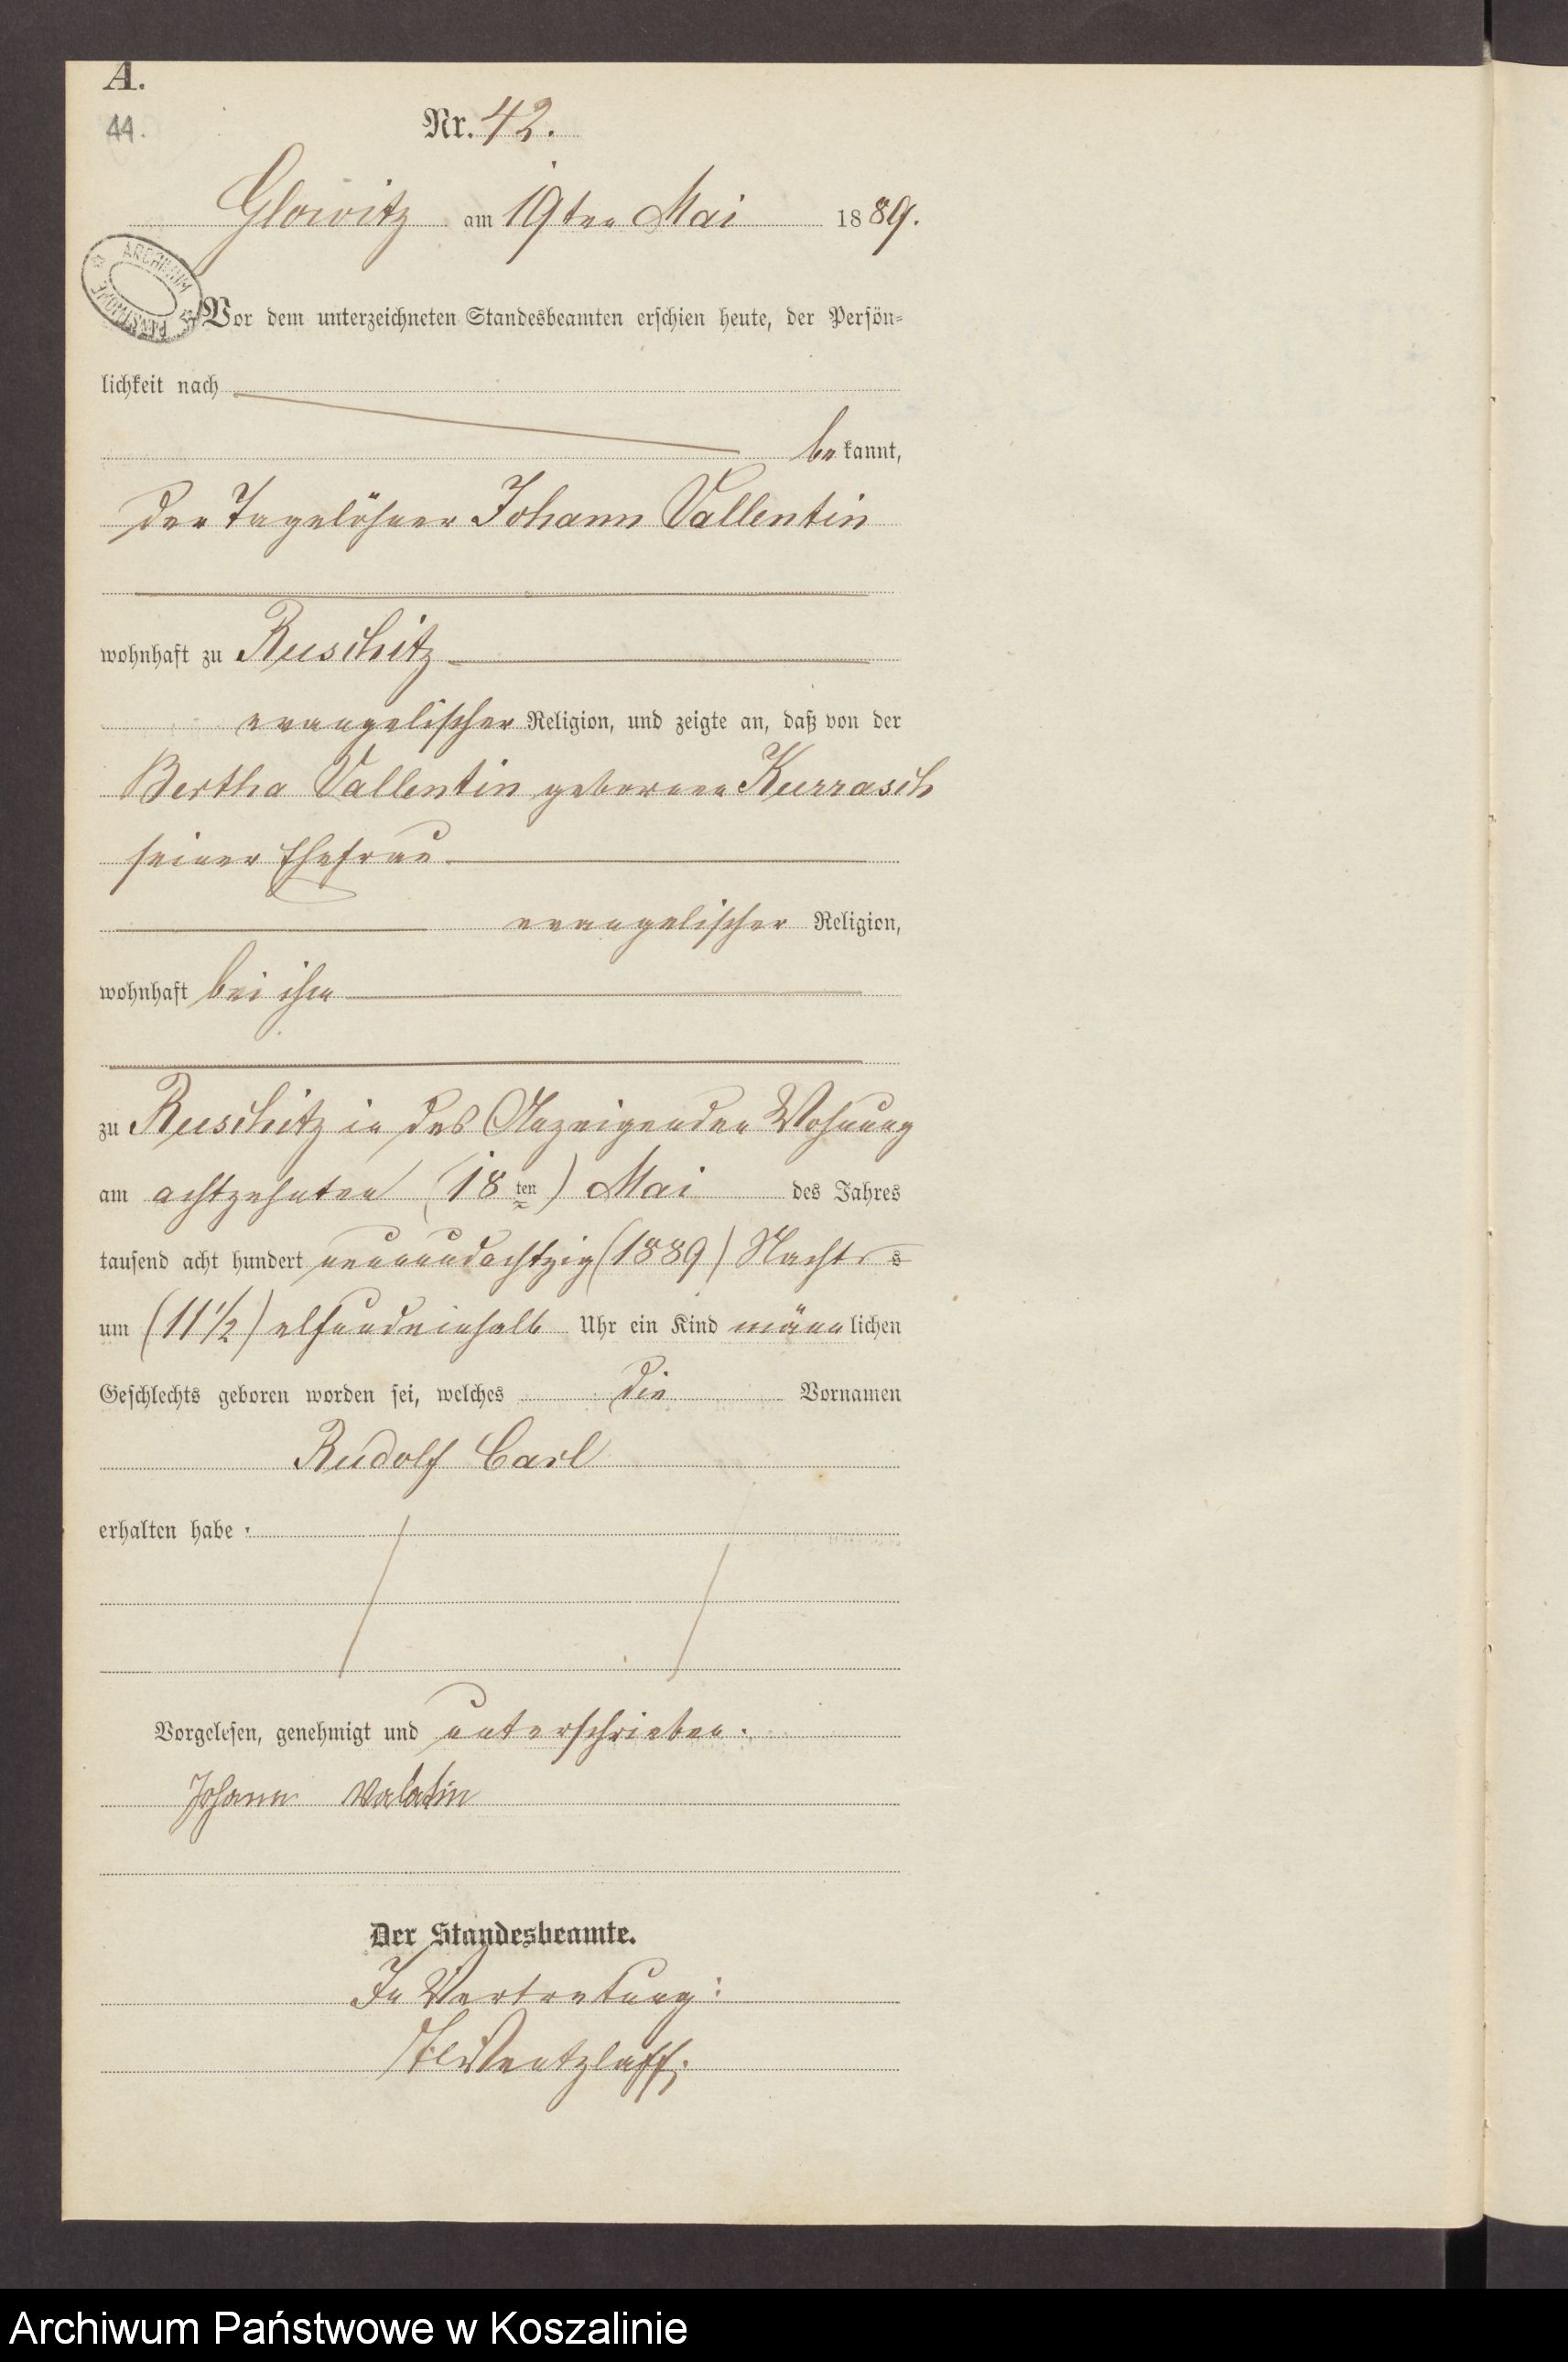 A.
44.
Nr. 42.
Glowitz am 19ten Mai 1889.
ARCHIWUM PAŃSTWOWE
Vor dem unterzeichneten Standesbeamten erschien heute, der Persön-
lichkeit nach
bekannt,
der Tagelöhner Johann Vallentin
wohnhaft zu Ruschitz
evangelischer Religion, und zeigte an, daß von der
Bertha Vallentin geborenen Kurrasch
seiner Ehefrau
evangelischer Religion,
wohnhaft bei ihm
zu Ruschitz in des Anzeigenden Wohnung
am achtzehnten (18ten) Mai des Jahres
tausend acht hundert neunundachtzig (1889) Nachts
um (11 1/2) elfundeinhalb Uhr ein Kind männlichen
Geschlechts geboren worden sei, welches die Vornamen
Rudolf Carl
erhalten habe.
Vorgelesen, genehmigt und unterschrieben.
Johann Valatin
Der Standesbeamte.
In Vertretung:
Wentzlaff.
Archiwum Państwowe w Koszalinie